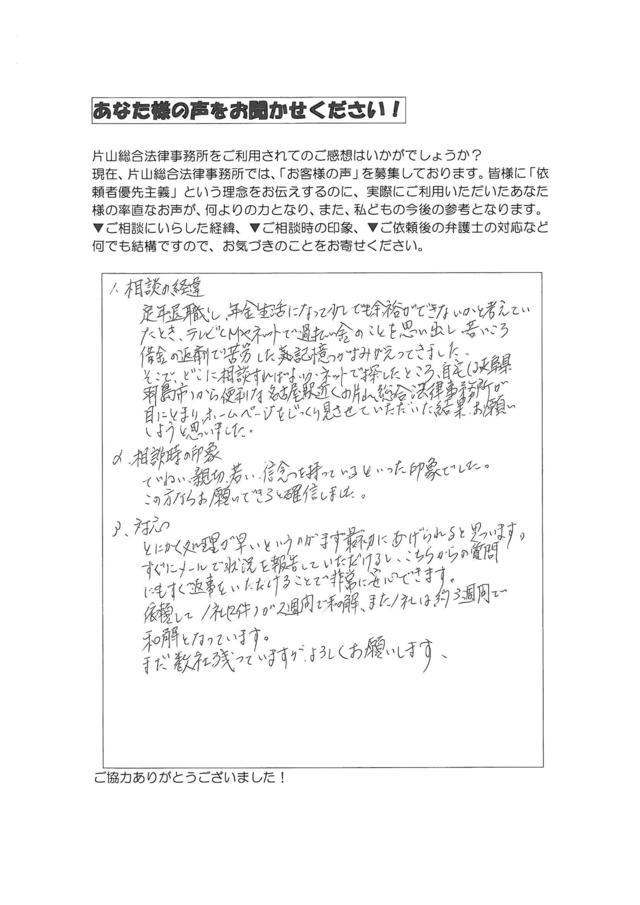 あなた様の声をお聞かせください！
片山総合法律事務所をご利用されてのご感想はいかがでしょうか？
現在、片山総合法律事務所では、「お客様の声」を募集しております。皆様に「依
頼者優先主義」という理念をお伝えするのに、実際にご利用いただいたあなた
様の率直なお声が、何よりの力となり、また、私どもの今後の参考となります。
▼ご相談にいらした経緯、▼ご相談時の印象、▼ご依頼後の弁護士の対応など
何でも結構ですので、お気づきのことをお寄せください。
1、相談の経緯
定年退職し、年金生活になって少しでも余裕ができないかと考えてい
たとき、テレビCMやネットで過払い金のことを思い出し 若いころ
借金の返済で苦労した記憶がよみがえってきました。
そこで、どこに相談すればよいか、ネットで探したところ、自宅(岐阜県
羽島市)から便利な名古屋駅近くの片山総合法律事務所が
目にとまり、ホームページをじっくり見させていただいた結果、お願い
しようと思いました。
2、相談時の印象
ていねい、親切、若い、信念を持っているといった印象でした。
この方ならお願いできると確信しました。
3、対応
とにかく処理が早いというのがまず最初にあげられると思います。
すぐにメールで状況を報告していただけるし、こちらからの質問
にもすぐ返事をいただけることで非常に安心できます。
依頼して1社(2件)が2週間で和解、また1社は約3週間で
和解となっています。
まだ数社残っていますが、よろしくお願いします、
ご協力ありがとうございました！